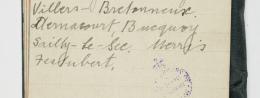 Villers-Bretonneux.
Dernacourt, Bucquoy
Sailly-le-Sec. Merris
Festubert.